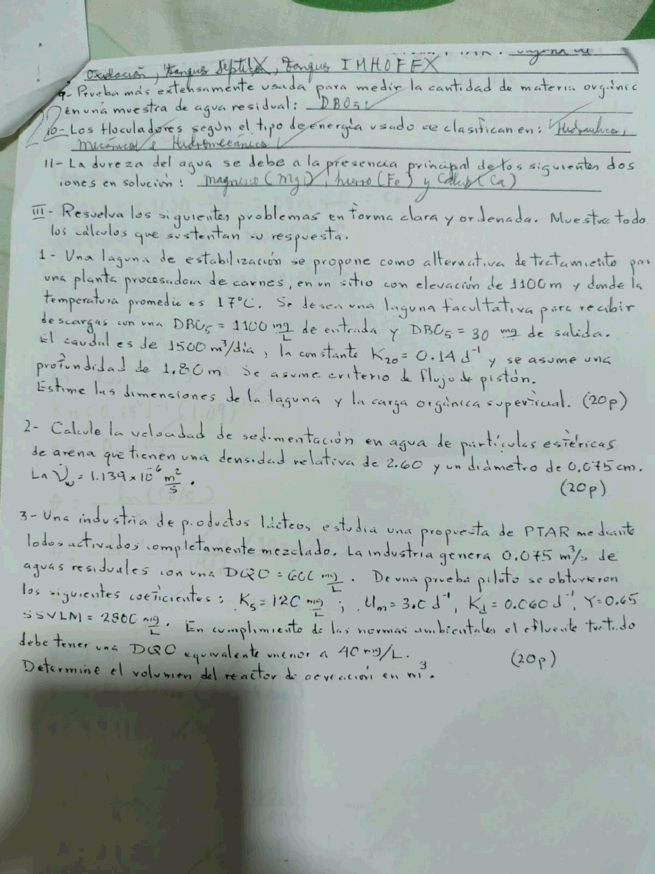 Oxidación, Tanques Septik, Tanques IMHOFF
9- Prueba más extensamente usada para medir la cantidad de materia orgánic
en una muestra de agua residual: DBO5
10- Los floculadores según el tipo de energía usado se clasifican en: Hidraulicos,
Mecánicos e Hidromecánicos
11- La dureza del agua se debe a la presencia principal de los siguientes dos
iones en solución: magnesio (Mg), hierro (Fe) y Calcio (Ca)
III- Resuelva los siguientes problemas en forma clara y ordenada. Muestre todo
los cálculos que sustentan su respuesta.
1- Una laguna de estabilización se propone como alternativa de tratamiento par
una planta procesadora de carnes, en un sitio con elevación de 1100m y donde la
temperatura promedio es 17°C. Se desea una laguna facultativa para recibir
descargas con una DBO5 = 1100 mg/L de entrada y DBO5 = 30 mg/L de salida.
El caudal es de 1500 m³/día, la constante K20 = 0.14 d⁻¹ y se asume una
profundidad de 1.80 m Se asume criterio de flujo de pistón.
Estime las dimensiones de la laguna y la carga orgánica superficial. (20p)
2- Calcule la velocidad de sedimentación en agua de partículas esféricas
de arena que tienen una densidad relativa de 2.60 y un diámetro de 0.075 cm.
La νw = 1.139 x 10⁻⁶ m²/s. (20p)
3- Una industria de productos lácteos estudia una propuesta de PTAR mediante
lodos activados completamente mezclado. La industria genera 0.075 m³/s de
aguas residuales con una DQO = 600 mg/L. De una prueba piloto se obtuvieron
los siguientes coeficientes: Ks = 120 mg/L ; Um = 3.0 d⁻¹, Kd = 0.060 d⁻¹, Y = 0.65
SSVLM = 2800 mg/L. En cumplimiento de las normas ambientales el efluente tratado
debe tener una DQO equivalente menor a 40 mg/L.
Determine el volumen del reactor de aereación en m³. (20p)